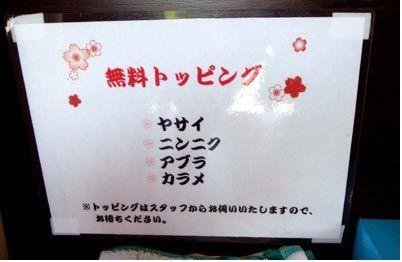 無料トッピング
ヤサイ
ニンニク
アブラ
カラメ
※トッピングはスタッフからお伺いいたしますので、
お待ちください。